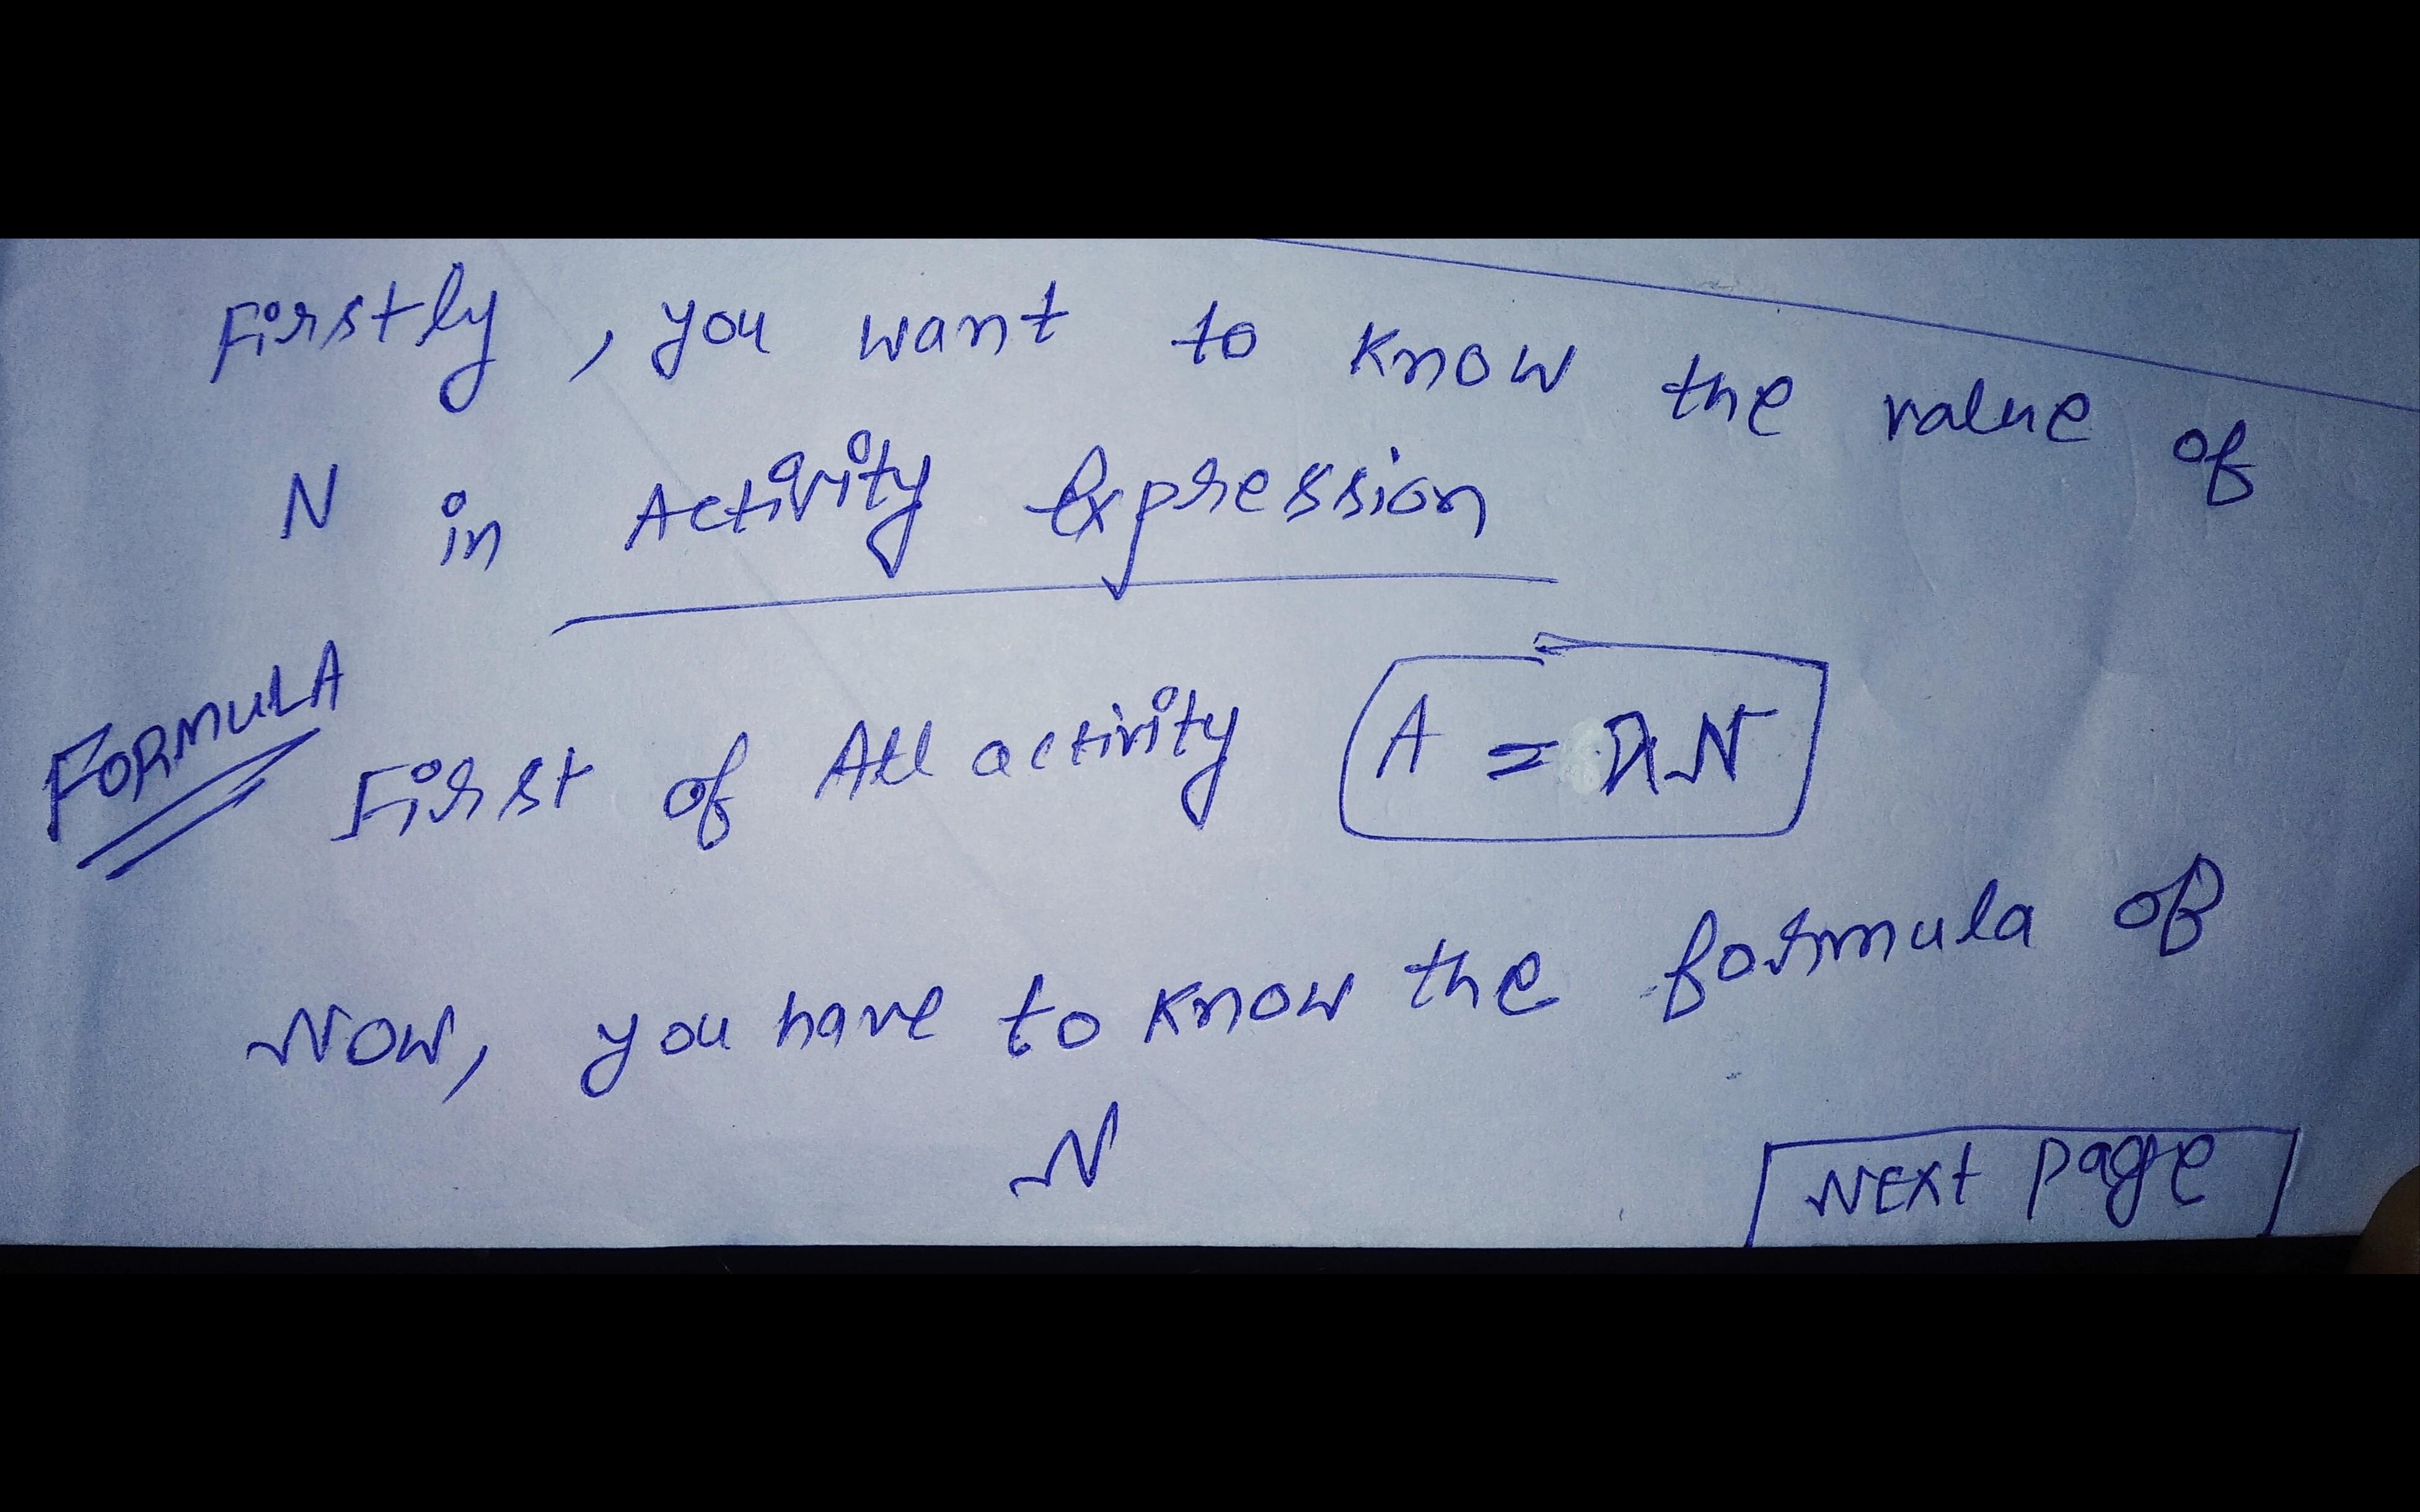 Firstly, you want to know the value of
N in Activity Expression
FORMULA
First of All activity A = λN
Now, you have to know the formula of
N
Next page